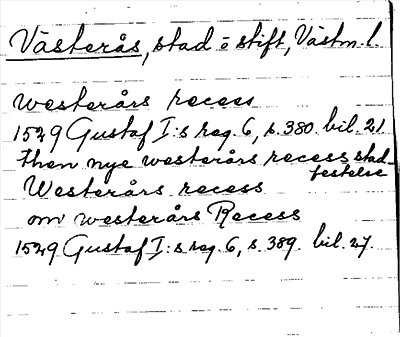 Västerås, stad o stift, Västm. l.
westerårs recess
1529 Gustaf I:s reg. 6, s. 380. bil. 21.
then nye westerårs recess stad-
festelse
Westerårs recess
om westerårs Recess
1529 Gustaf I:s reg. 6, s. 389. bil. 27.